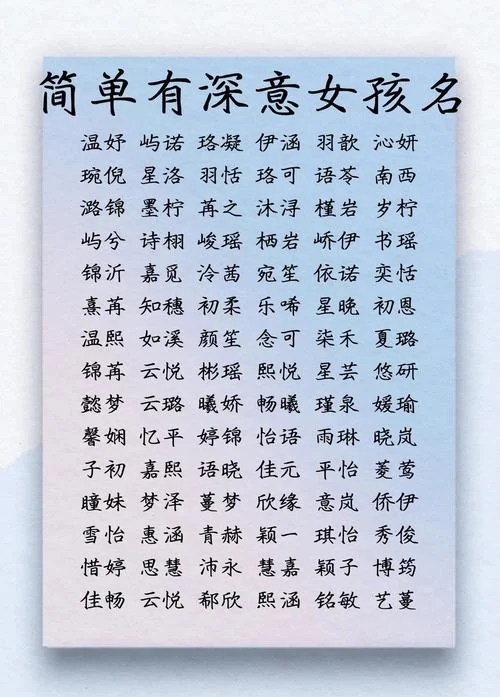 简单有深意女孩名
温妤 屿诺 珞凝 伊涵 羽歆 沁妍
琬倪 星洛 羽恬 珞可 语苓 南西
潞锦 墨柠 苒之 沐浔 槿岩 岁柠
屿兮 诗栩 峻瑶 栖岩 峤伊 书瑶
锦沂 嘉觅 泠茜 宛笙 依诺 奕恬
熹苒 知穗 初柔 乐唏 星晚 初恩
温熙 如溪 颜笙 念可 柒禾 夏璐
锦苒 云悦 彬瑶 熙悦 星芸 悠研
懿梦 云璐 曦娇 畅曦 瑾泉 媛瑜
馨娴 忆平 婷锦 怡语 雨琳 晓岚
子初 嘉熙 语晓 佳元 平怡 菱莺
瞳妹 梦泽 蔓梦 欣缘 意岚 侨伊
雪怡 惠涵 青赫 颖一 琪怡 秀俊
惜婷 思慧 沛永 慧嘉 颖子 博筠
佳畅 云悦 郗欣 熙涵 铭敏 艺蔓